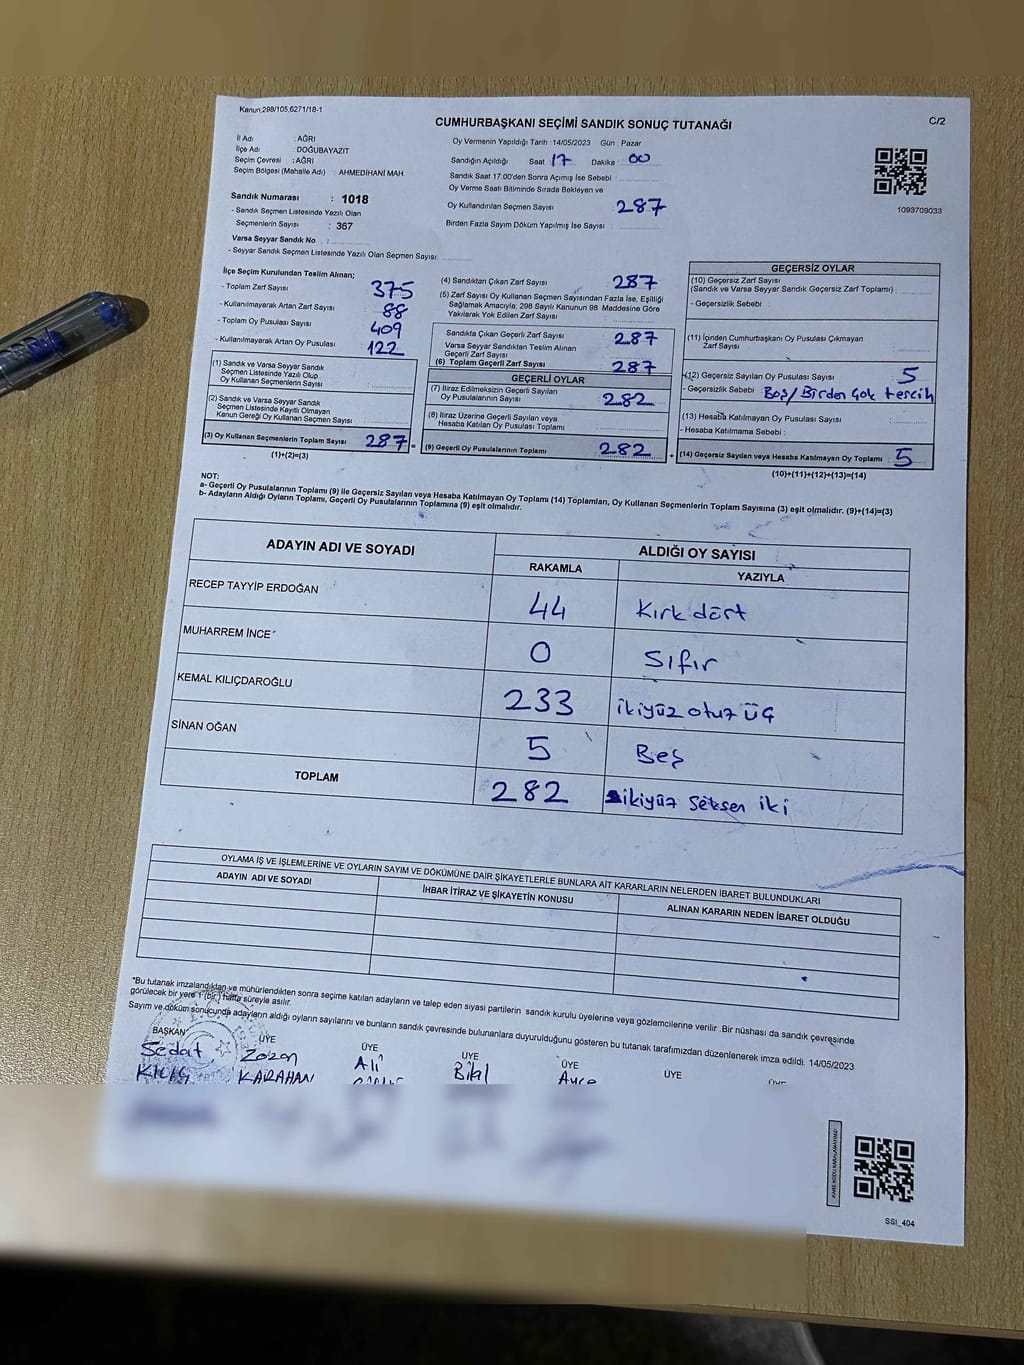 Kanun 298/105,6271/18-1
C/2
CUMHURBAŞKANI SEÇİMİ SANDIK SONUÇ TUTANAĞI
İl Adı : AĞRI
İlçe Adı DOĞUBAYAZIT
Seçim Çevresi : AĞRI
Seçim Bölgesi (Mahalle Adı) : AHMEDİHANİ MAH.
Sandık Numarası : 1018
- Sandık Seçmen Listesinde Yazılı Olan
Seçmenlerin Sayısı : 367
Varsa Seyyar Sandık No :
- Seyyar Sandık Seçmen Listesinde Yazılı Olan Seçmen Sayısı:
Oy Vermenin Yapıldığı Tarih : 14/05/2023 Gün : Pazar
Sandığın Açıldığı Saat 17 Dakika : 00
Sandık Saat 17.00'den Sonra Açımış İse Sebebi :
Oy Verme Saati Bitiminde Sırada Bekleyen ve
Oy Kullandırılan Seçmen Sayısı 287
Birden Fazla Sayım Döküm Yapılmış İse Sayısı :
1093709033
İlçe Seçim Kurulundan Teslim Alınan;
- Toplam Zarf Sayısı : 375
- Kullanılmayarak Artan Zarf Sayısı : 88
- Toplam Oy Pusulası Sayısı : 409
- Kullanılmayarak Artan Oy Pusulası : 122
(1) Sandık ve Varsa Seyyar Sandık
Seçmen Listesinde Yazılı Olup
Oy Kullanan Seçmenlerin Sayısı :
(2) Sandık ve Varsa Seyyar Sandık
Seçmen Listesinde Kayıtlı Olmayan
Kanun Gereği Oy Kullanan Seçmen Sayısı :
(3) Oy Kullanan Seçmenlerin Toplam Sayısı 287 =
(1)+(2)=(3)
(4) Sandıktan Çıkan Zarf Sayısı : 287
(5) Zarf Sayısı Oy Kullanan Seçmen Sayısından Fazla İse, Eşitliği
Sağlamak Amacıyla; 298 Sayılı Kanunun 98 Maddesine Göre
Yakılarak Yok Edilen Zarf Sayısı :
Sandıkta Çıkan Geçerli Zarf Sayısı : 287
Varsa Seyyar Sandıktan Teslim Alınan
Geçerli Zarf Sayısı
(6) Toplam Geçerli Zarf Sayısı : 287
GEÇERLİ OYLAR
(7) İtiraz Edilmeksizin Geçerli Sayılan
Oy Pusulalarının Sayısı : 282
(8) İtiraz Üzerine Geçerli Sayılan veya
Hesaba Katılan Oy Pusulası Toplamı :
(9) Geçerli Oy Pusulalarının Toplamı : 282 +
GEÇERSİZ OYLAR
(10) Geçersiz Zarf Sayısı
(Sandık ve Varsa Seyyar Sandık Geçersiz Zarf Toplamı) :
- Geçersizlik Sebebi :
(11) İçinden Cumhurbaşkanı Oy Pusulası Çıkmayan
Zarf Sayısı :
(12) Geçersiz Sayılan Oy Pusulası Sayısı : 5
- Geçersizlik Sebebi : Boş/Birden Çok tercih
(13) Hesaba Katılmayan Oy Pusulası Sayısı :
- Hesaba Katılmama Sebebi :
(14) Geçersiz Sayılan veya Hesaba Katılmayan Oy Toplamı : 5
(10)+(11)+(12)+(13)=(14)
NOT:
a- Geçerli Oy Pusulalarının Toplamı (9) ile Geçersiz Sayılan veya Hesaba Katılmayan Oy Toplamı (14) Toplamları, Oy Kullanan Seçmenlerin Toplam Sayısına (3) eşit olmalıdır. (9)+(14)=(3)
b- Adayların Aldığı Oyların Toplamı, Geçerli Oy Pusulalarının Toplamına (9) eşit olmalıdır.
ADAYIN ADI VE SOYADI
ALDIĞI OY SAYISI
RAKAMLA YAZIYLA
RECEP TAYYİP ERDOĞAN 44 Kırk dört
MUHARREM İNCE 0 Sıfır
KEMAL KILIÇDAROĞLU 233 ikiyüz otuz üç
SİNAN OĞAN 5 Beş
TOPLAM 282 ikiyüz seksen iki
OYLAMA İŞ VE İŞLEMLERİNE VE OYLARIN SAYIM VE DÖKÜMÜNE DAİR ŞİKAYETLERLE BUNLARA AİT KARARLARIN NELERDEN İBARET BULUNDUKLARI
ADAYIN ADI VE SOYADI İHBAR İTİRAZ VE ŞİKAYETİN KONUSU ALINAN KARARIN NEDEN İBARET OLDUĞU
*Bu tutanak imzalandıktan ve mühürlendikten sonra seçime katılan adayların ve talep eden siyasi partilerin sandık kurulu üyelerine veya gözlemcilerine verilir .Bir nüshası da sandık çevresinde
görülecek bir yere 1 (bir) hafta süreyle asılır.
Sayım ve döküm sonucunda adayların aldığı oyların sayılarını ve bunların sandık çevresinde bulunanlara duyurulduğunu gösteren bu tutanak tarafımızdan düzenlenerek imza edildi. 14/05/2023
BAŞKAN ÜYE ÜYE ÜYE ÜYE ÜYE
Sedat Zozan Ali Bilal
KILIÇ KARAHAN
SSI_404